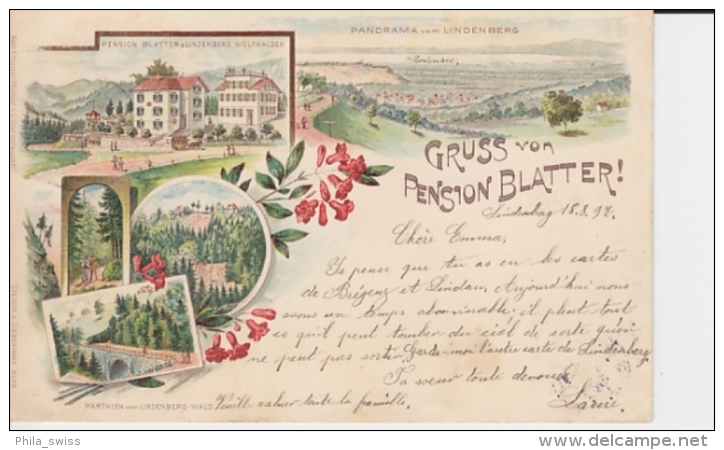 PENSION BLATTER & LINDENBERG WOLFHALDEN
PANORAMA vom LINDENBERG
Bodensee
GRUSS von
PENSION BLATTER!
Lindenberg 18.8.97.
Chère Emma,
Je pense que tu as eu les cartes
de Brégenz et Lindau, Aujourd'hui nous
avons un temps abominable, il pleut tout
ce qu'il peut tomber du ciel de sorte qu'on
ne peut pas sortir. Garde-moi l'autre carte de Lindenberg
Ta soeur toute dévouée
PARTHIEN vom LINDENBERG-WALD.
Veuille saluer toute la famille.
Phila_swiss
http://www.delcampe.net